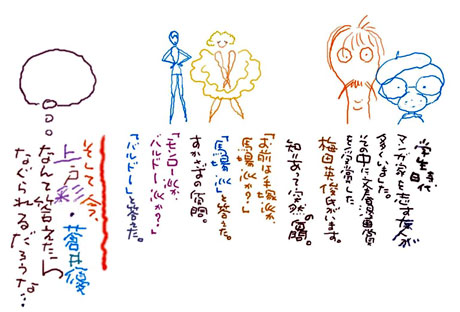 学生時代
マンガ家を志す友人が
多くいました。
その中に文春漫画賞
を受賞した
梅田英俊氏がいます。
知りあって突然の質問。
「お前は手塚派か?
馬場派か?」
「馬場派」と答えた。
すかさずの質問。
「モンロー派か
バルドー派か?」
「バルドー」と答えた。
そして今、
上戸彩・蒼井優
なんて答えたら
なぐられるだろうな…